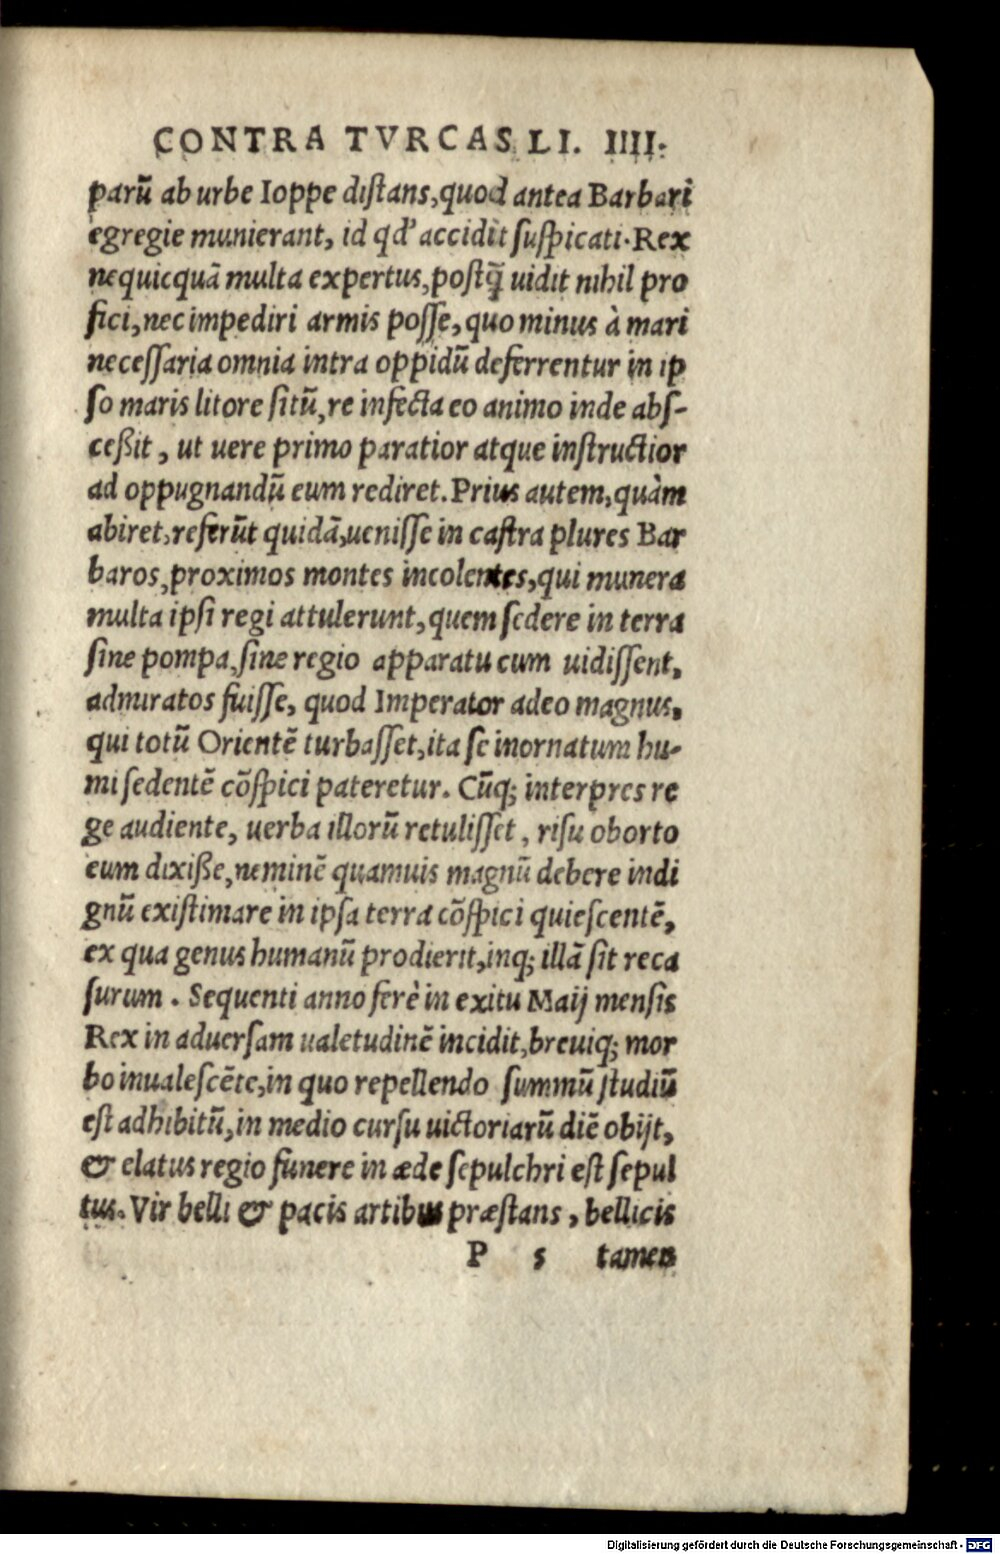 CONTRA TVRCAS LI. IIII.
parũ ab urbe Ioppe distans, quod antea Barbari
egregie munierant, id qd' accidit suspicati. Rex
nequicquã multa expertus, postq̃ uidit nihil pro
fici, nec impediri armis posse, quo minus à mari
necessaria omnia intra oppidũ deferrentur in ip
so maris litore sitũ, re infecta eo animo inde abs-
ceßit, ut uere primo paratior atque instructior
ad oppugnandũ eum rediret. Prius autem, quàm
abiret, referũt quidã, uenisse in castra plures Bar
baros, proximos montes incolentes, qui munera
multa ipsi regi attulerunt, quem sedere in terra
sine pompa, sine regio apparatu cum uidissent,
admiratos fuisse, quod Imperator adeo magnus,
qui totũ Orientẽ turbasset, ita se inornatum hu-
mi sedentẽ cõspici pateretur. Cũq; interpres re
ge audiente, uerba illorũ retulisset, risu oborto
eum dixiße, neminẽ quamuis magnũ debere indi
gnũ existimare in ipsa terra cõspici quiescentẽ,
ex qua genus humanũ prodierit, inq; illã sit reca
surum. Sequenti anno ferè in exitu Maij mensis
Rex in aduersam ualetudinẽ incidit, breuiq; mor
bo inualescẽte, in quo repellendo summũ studiũ
est adhibitũ, in medio cursu uictoriarũ diẽ obijt,
& elatus regio funere in æde sepulchri est sepul
tus. Vir belli & pacis artibus præstans, bellicis
P 5 tamen
Digitalisierung gefördert durch die Deutsche Forschungsgemeinschaft - DFG